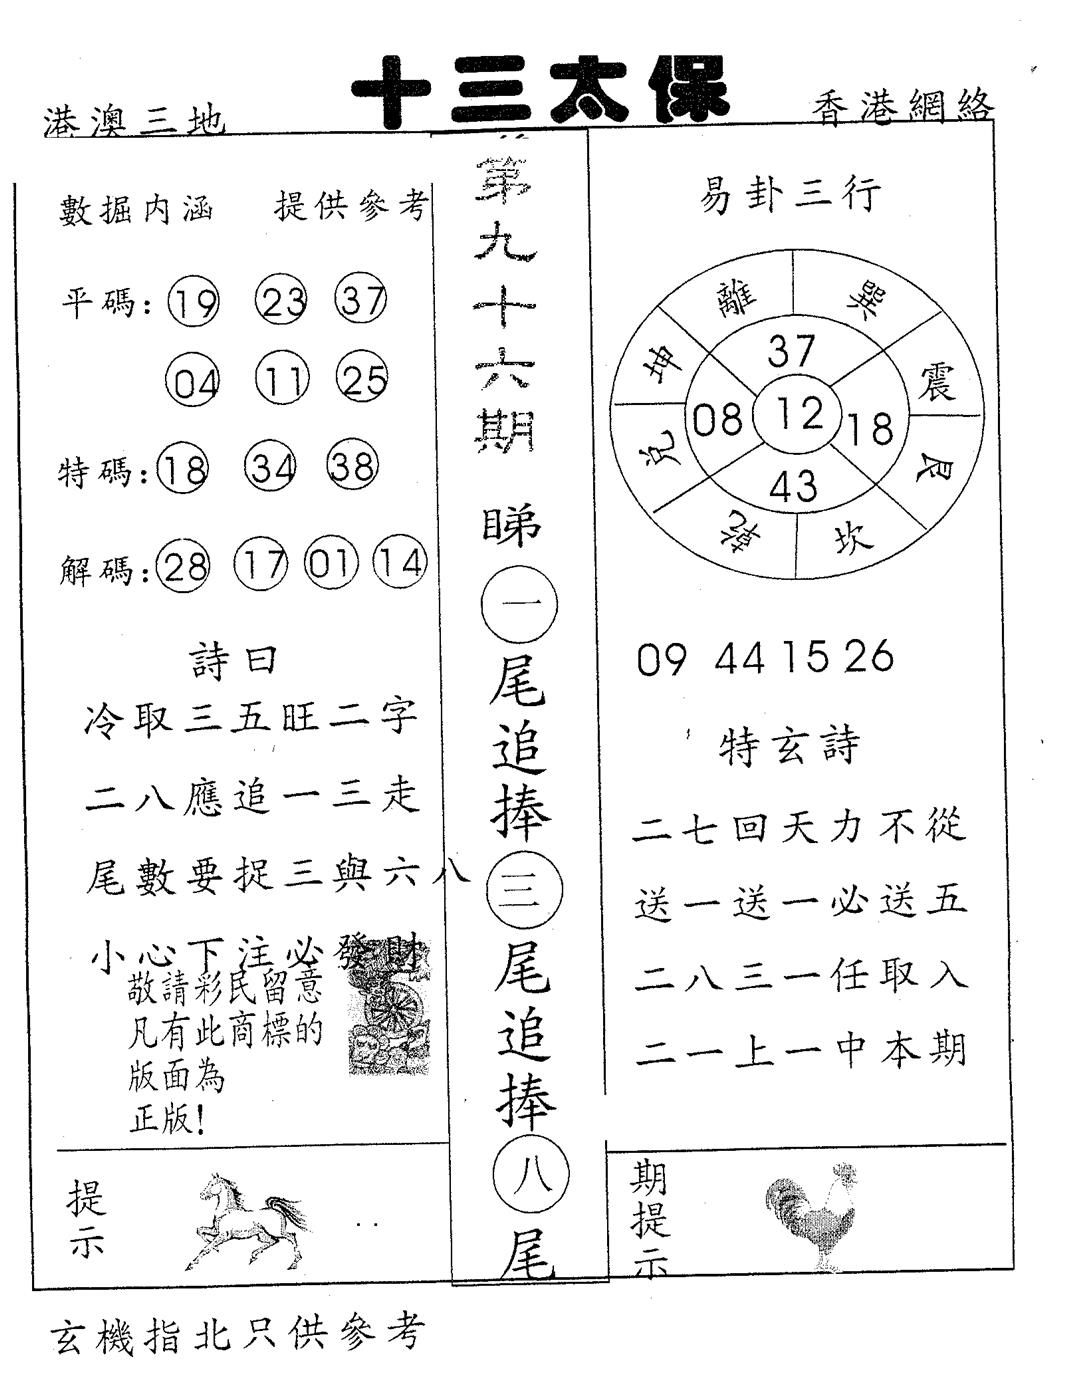 十三太保
港澳三地
香港網絡
數掘内涵 提供參考
平碼: 19 23 37
04 11 25
特碼: 18 34 38
解碼: 28 17 01 14
詩曰
冷取三五旺二字
二八應追一三走
尾數要捉三與六八
小心下注必發財
敬請彩民留意
凡有此商標的
版面為
正版!
提示
第九十六期
睇一尾追捧三尾追捧八尾
易卦三行
離 巽
坤 震
兌 艮
乾 坎
37
08 12 18
43
09 44 15 26
特玄詩
二七回天力不從
送一送一必送五
二八三一任取入
二一上一中本期
期提示
玄機指北只供參考